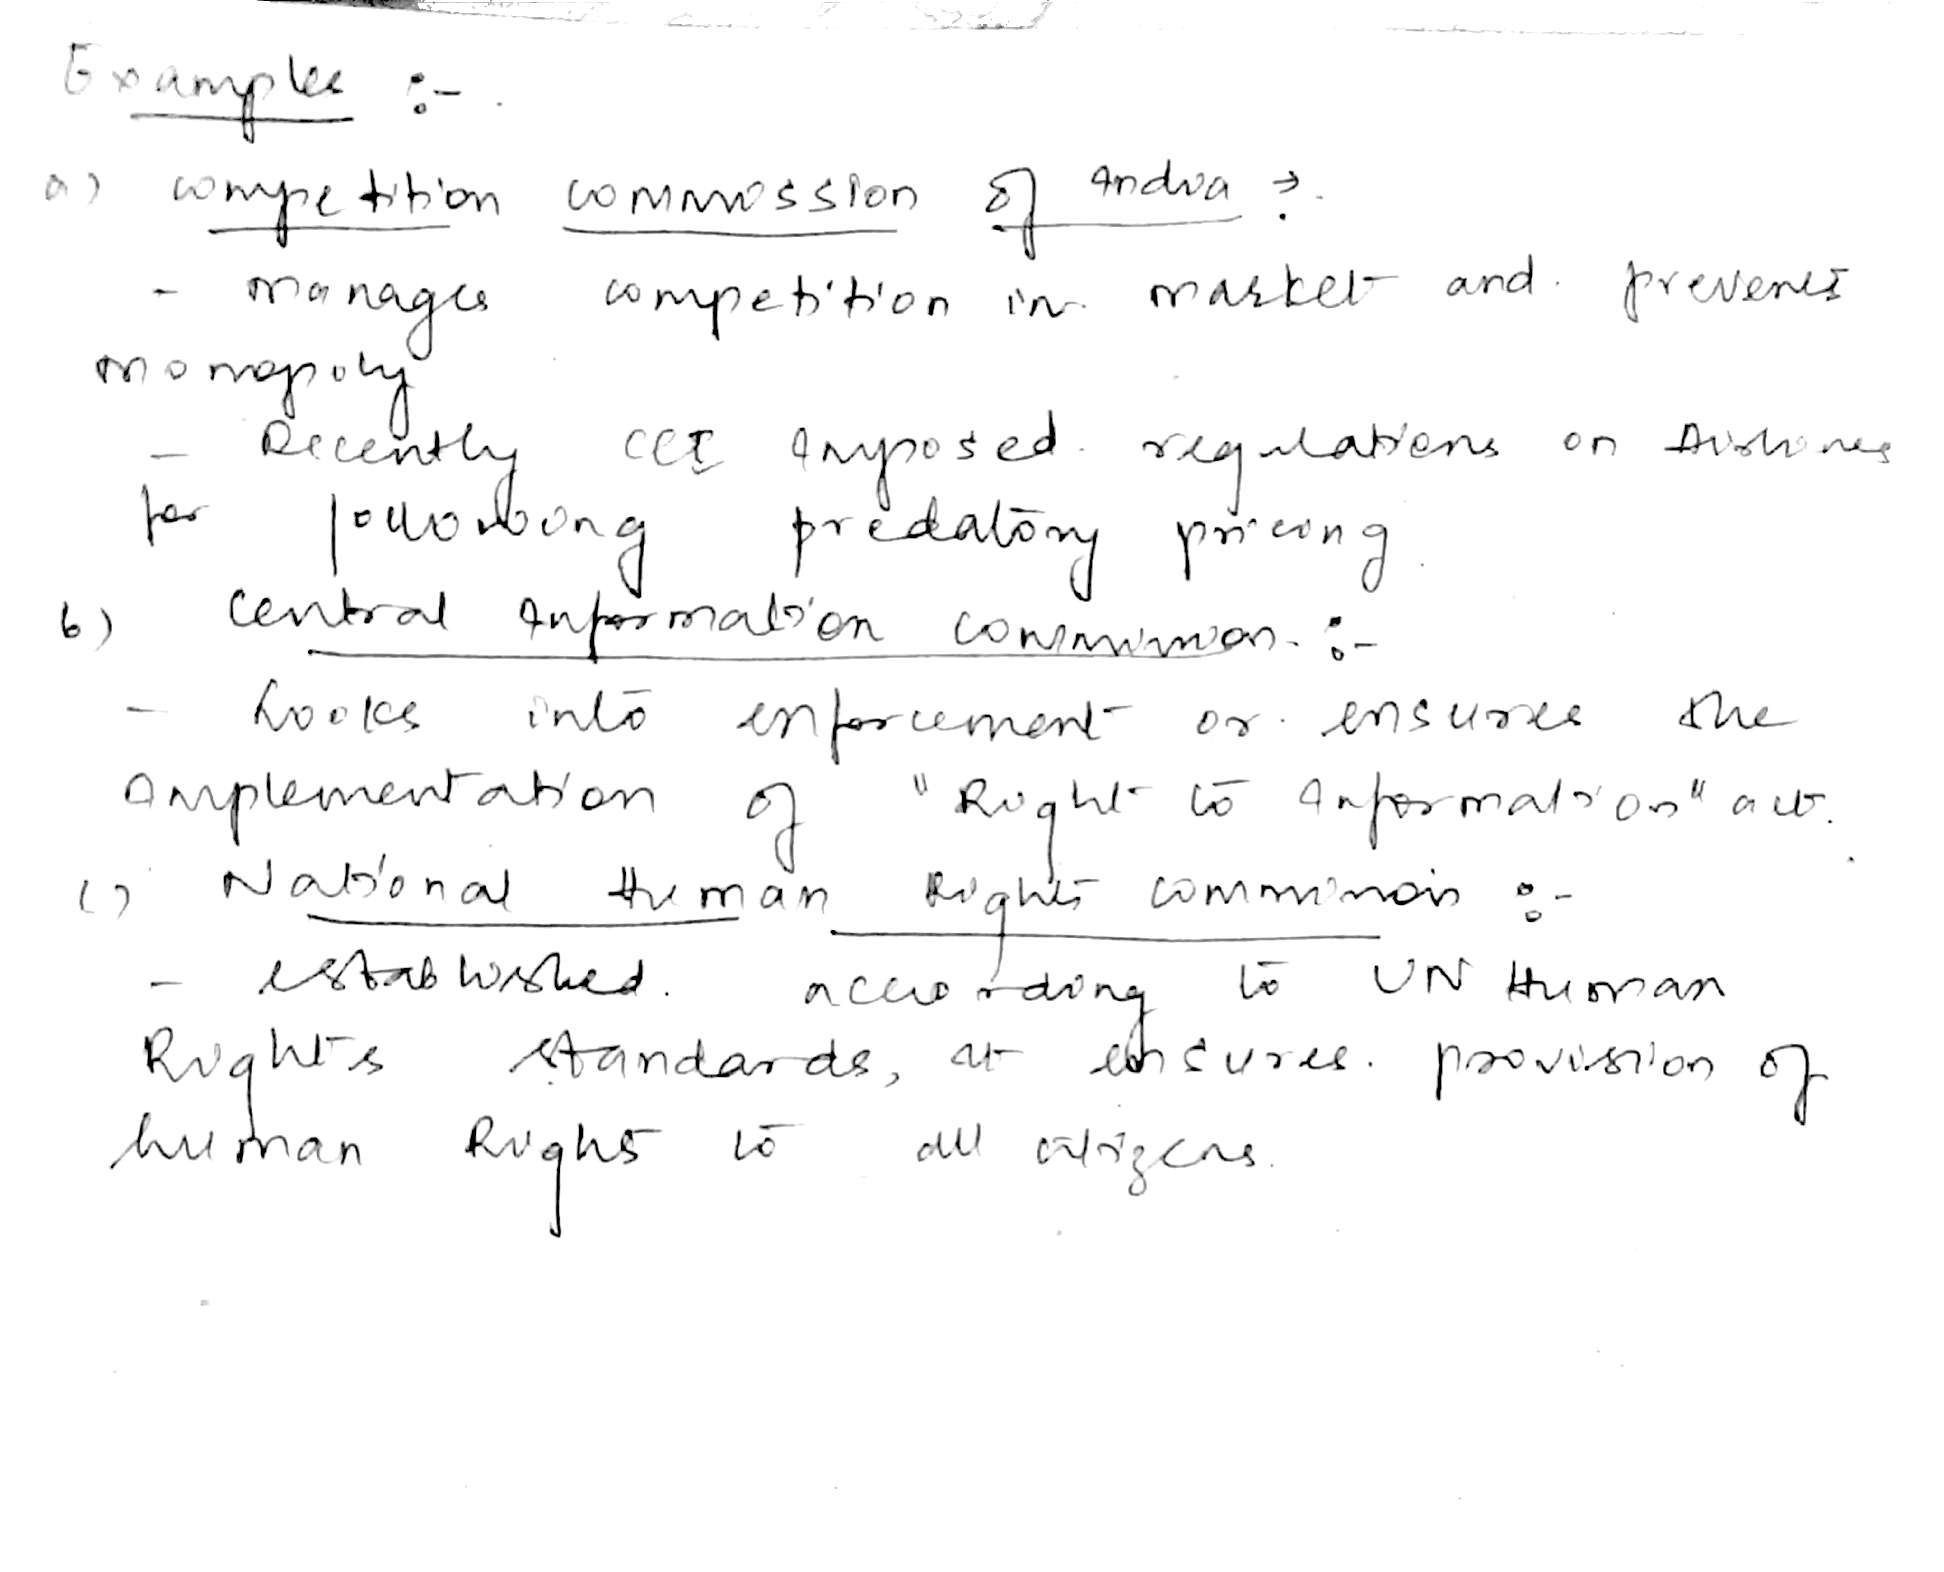 Examples :-
a) competition commission of India :-
- manages competition in market and prevents
monopoly
- Recently CCI imposed regulations on Airlines
for following predatory pricing
b) Central Information commission :-
- Looks into enforcement or ensures the
implementation of "Right to Information" act.
c) National Human Rights commission :-
- established according to UN Human
Rights standards, it ensures provision of
human Rights to all citizens.